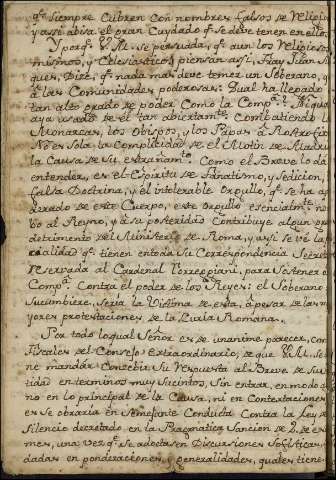 qᵉ siempre cubren con nombres falsos de Religion
y assi abisa el gran Cuydado qᵉ se deve tener en ello.
Y porqᵉ V. M. se persuada, qᵉ aun los Religiosos
mismos, y Eclesiasticos piensan assi, Fray Juan
quez, Dice qᵉ nada mas deve temer un Soberano, q
à las Comunidades poderosas: Qual ha llegado
tan alto grado de poder Como la Compᵃ? Ni qui
aya usado de el tan abiertamᵗᵉ Combatiendo
Monarcas, los Obispos, y los Papas à Rostro fir
No es sola la Complicidad de el Motin de Madrid
la Causa de su estrañamᵗᵒ Como el Breve lo da
entender, es el Espiritu de fanatismo, y sedicion,
falsa Doctrina, y el intolerable Orgullo, qᵉ se ha a
derado de este Cuerpo, este orgullo esencialmᵗᵉ no
bo al Reyno, y à su posteridad Contribuye algun
detrimento del Ministerio de Roma, y assi se ve la
cialidad qᵉ tienen en toda su Correspondencia Secre
reservada al Cardenal Torregiani, para Sostener
Compᵃ Contra el poder de los Reyes: el Soberano
Sucumbiere, seria la Victima de esta, à pesar de las
yores protestaciones de la Curia Romana.
Por todo lo qual Señor es de unanime parecer, con
Fiscales del Consejo extraordinario, de que V. M. se
ne mandar Concebir su Respuesta al Breve de su
tidad en terminos muy Sucintos, Sin entrar, en modo
no en lo principal de la Causa, ni en Contextaciones
es se obraria en Semejante Conducta Contra la ley de
Silencio decretado en la Pragmatica Sancion de 2. de es
mes, una vez qᵉ se adoptasen Discursiones Sofisticas
dadas en ponderaciones, y generalidades, quales tiene